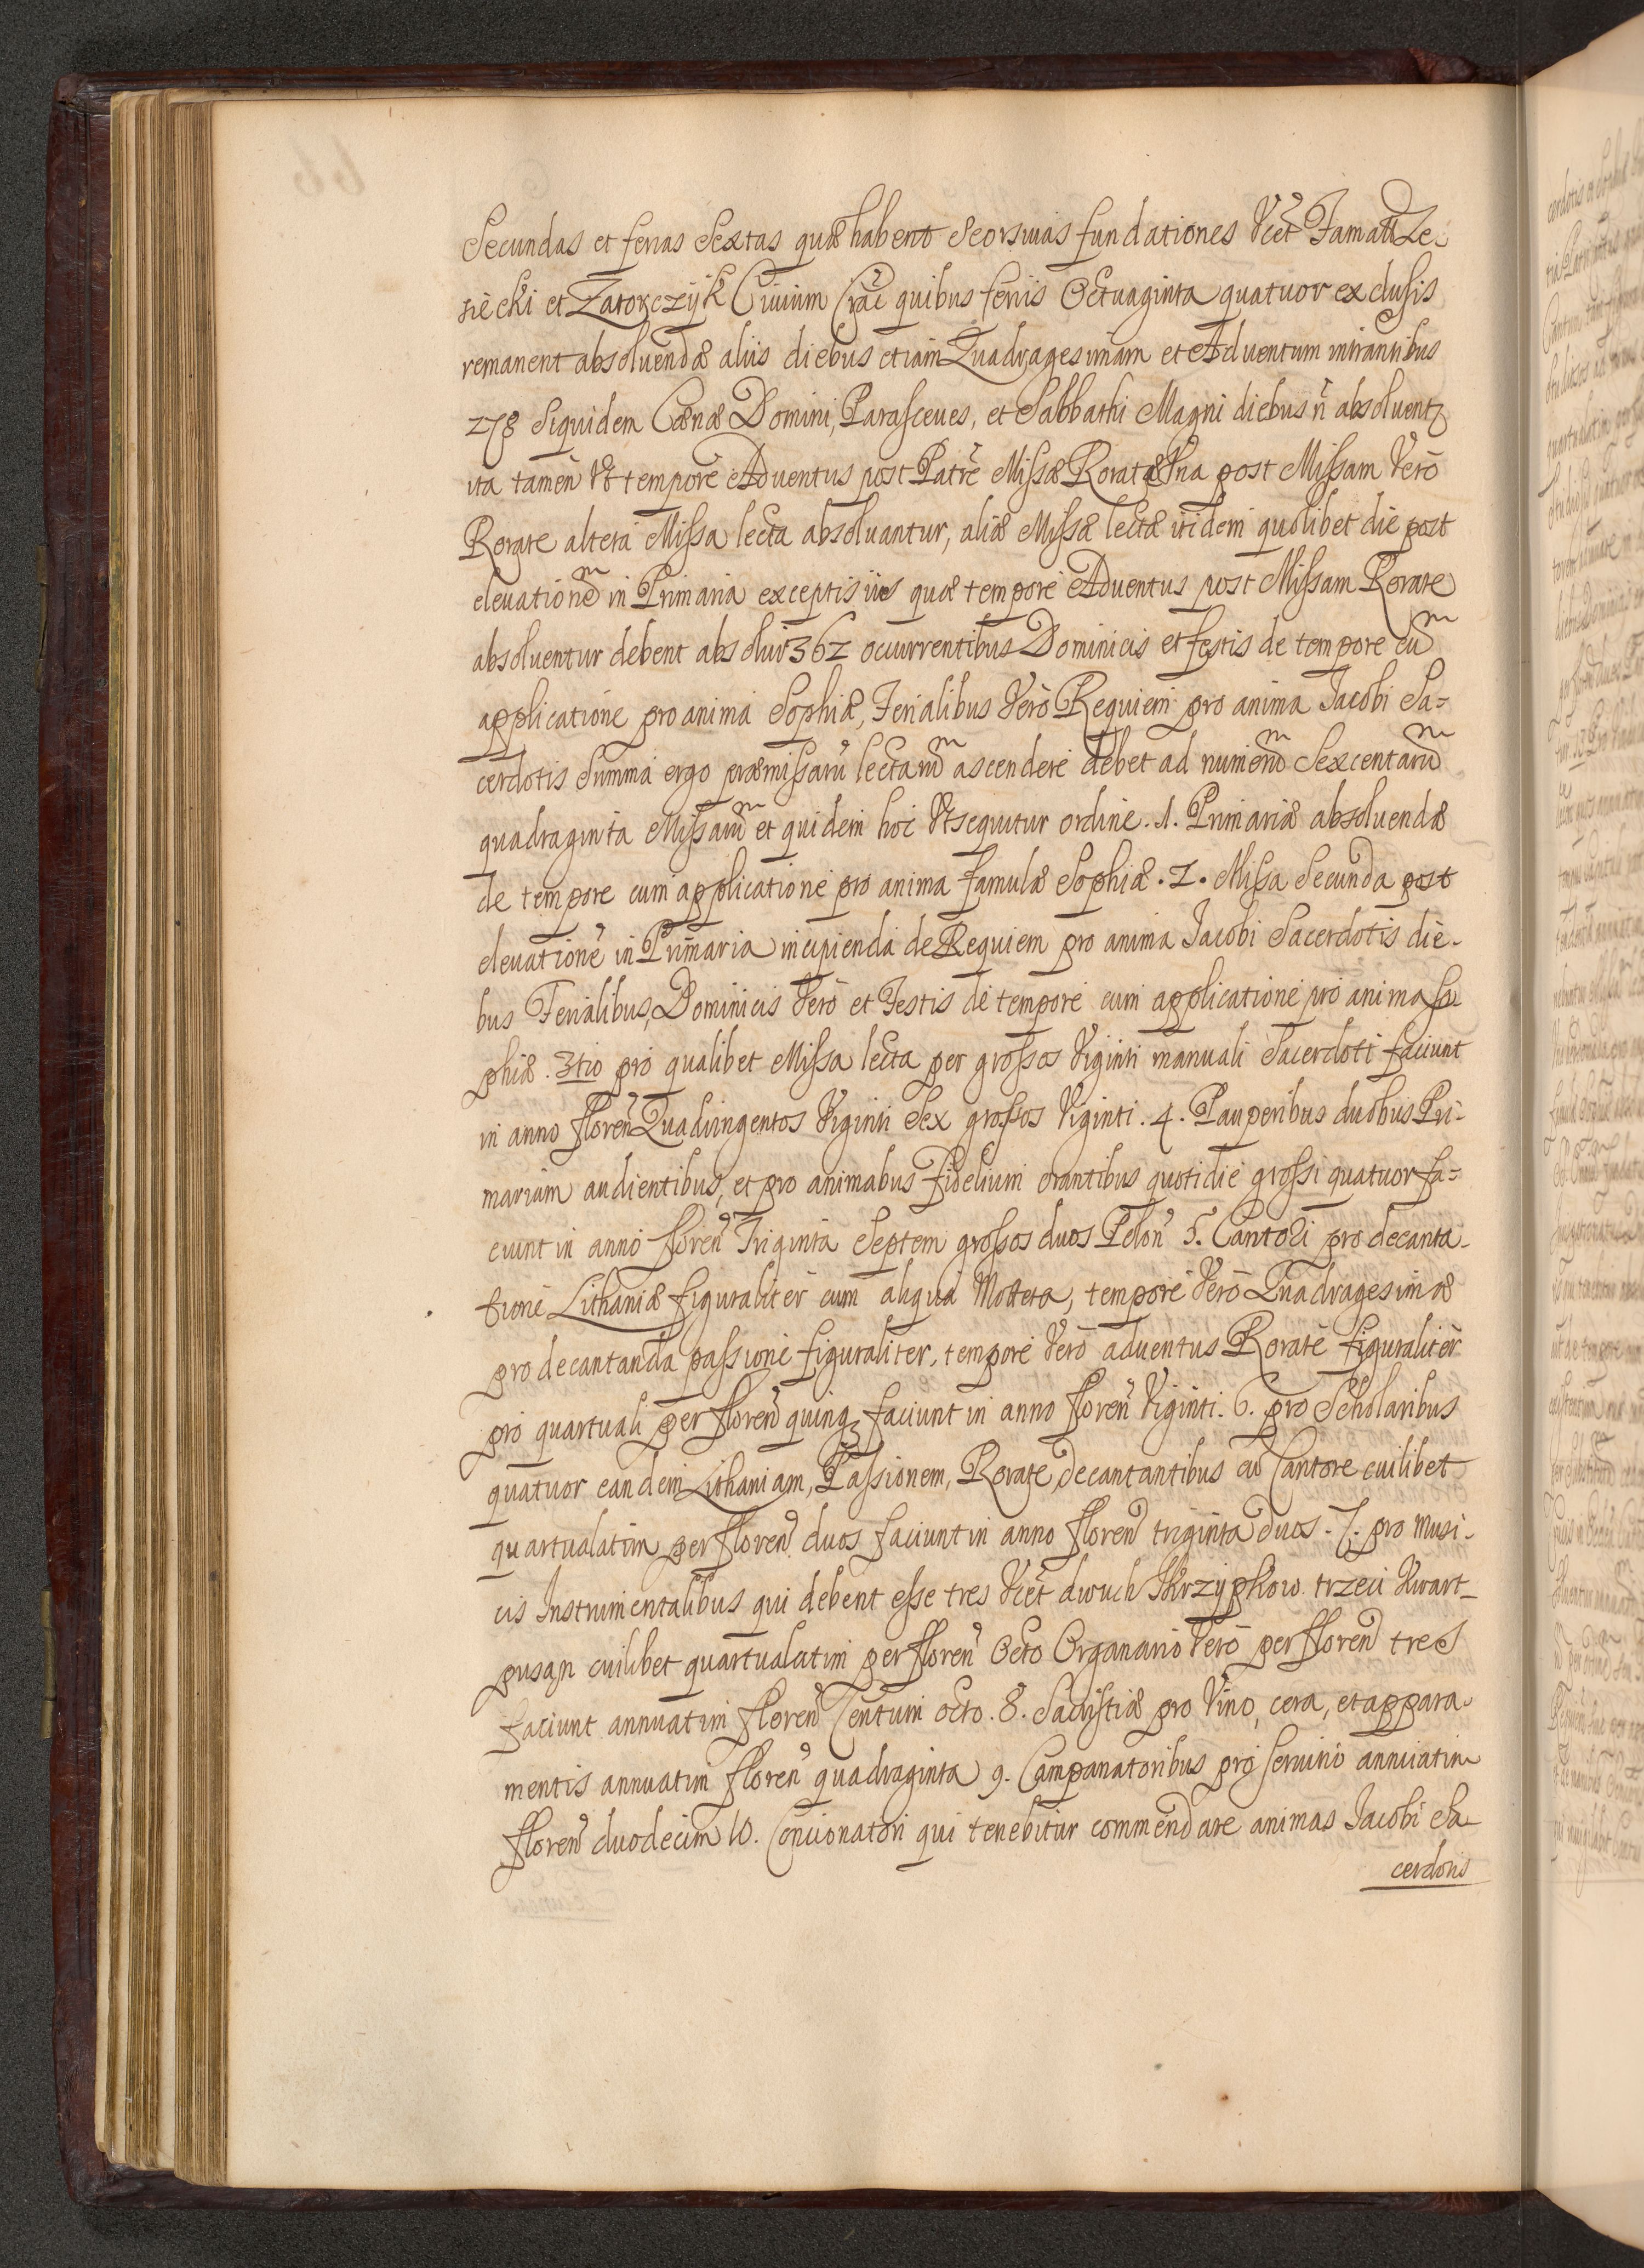 Secundas et ferias Sextas quæ habent Seorsivas fundationes Vĉet Famatt Ze-
siecki et Zatorczÿk Civium Crac̃ quibus feriis Octuaginta quatuor exclusis
remanent absoluendæ aliis diebus etiam Quadragesimam et Aduentum intrantibus
278 Siquidem Cænæ Domini, Parasceues, et Sabbathi Magni diebus ñ absoluentꝫ
ita tamen Vt tempore Aduentus post Patrẽ Missæ Rorate Vna post Missam Vero
Rorate altera Missa lecta absoluantur, aliæ Missæ lectæ itidem quolibet die post
eleuationem in Primaria exceptis iis quæ tempore Aduentus post Missam Rorate
absoluentur debent absolui 362 ocurrentibus Dominicis et festis de tempore cum
applicatione pro anima Sophiæ, Ferialibus Vero Requiem pro anima Jacobi Sa=
cerdotis Summa ergo præmissarũ lectarum ascendere debet ad numerum Sexcentarum
quadraginta Missarum et quidem hoc Vt sequitur ordine. 1. Primariæ absoluendæ
de tempore cum applicatione pro anima famulæ Sophiæ. 2. Missa Secunda post
eleuationẽ in Primaria incipienda de Requiem pro anima Jacobi Sacerdotis die-
bus Ferialibus, Dominicis Vero et Festis de tempore cum applicatione pro anima So
phiæ. 3tio pro qualibet Missa lecta per grossos Viginti manuali Sacerdoti faciunt
in anno floreñ Quadringentos Viginti Sex grossos Viginti. 4. Pauperibus duobus Pri-
mariam audientibus, et pro animabus fidelium orantibus quotidie grossi quatuor fa=
ciunt in anno floreñ Triginta Septem grossos duos Poloñ 5. Cantori pro decanta-
tione Lithaniæ figuraliter cum aliqua Motteta, tempore Vero Quadragesimæ
pro decantanda passione figuraliter, tempore Vero aduentus Rorate figuraliter
pro quartuali per floreñ quinqꝫ faciunt in anno floreñ Viginti. 6. pro Scholaribus
quatuor eandem Lithaniam, Passionem, Rorate, decantantibus cũ Cantore cuilibet
quartualatim per floreñ duos faciunt in anno floreñ triginta duos. 7. pro Musi-
cis Instrumentalibus qui debent esse tres Vĉet dwuch Skrzypkow trzeci Kwart-
pusan cuilibet quartualatim per floreñ Octo Organario Vero per floreñ tres
faciunt annuatim floreñ Centum octo. 8. Sacristiæ pro Vino, cera, et appara-
mentis annuatim floreñ quadraginta 9. Campanatoribus pro seruitio annuatim
floreñ duodecim 10. Concionatori qui tenebitur commendare animas Jacobi Sa
cerdotis